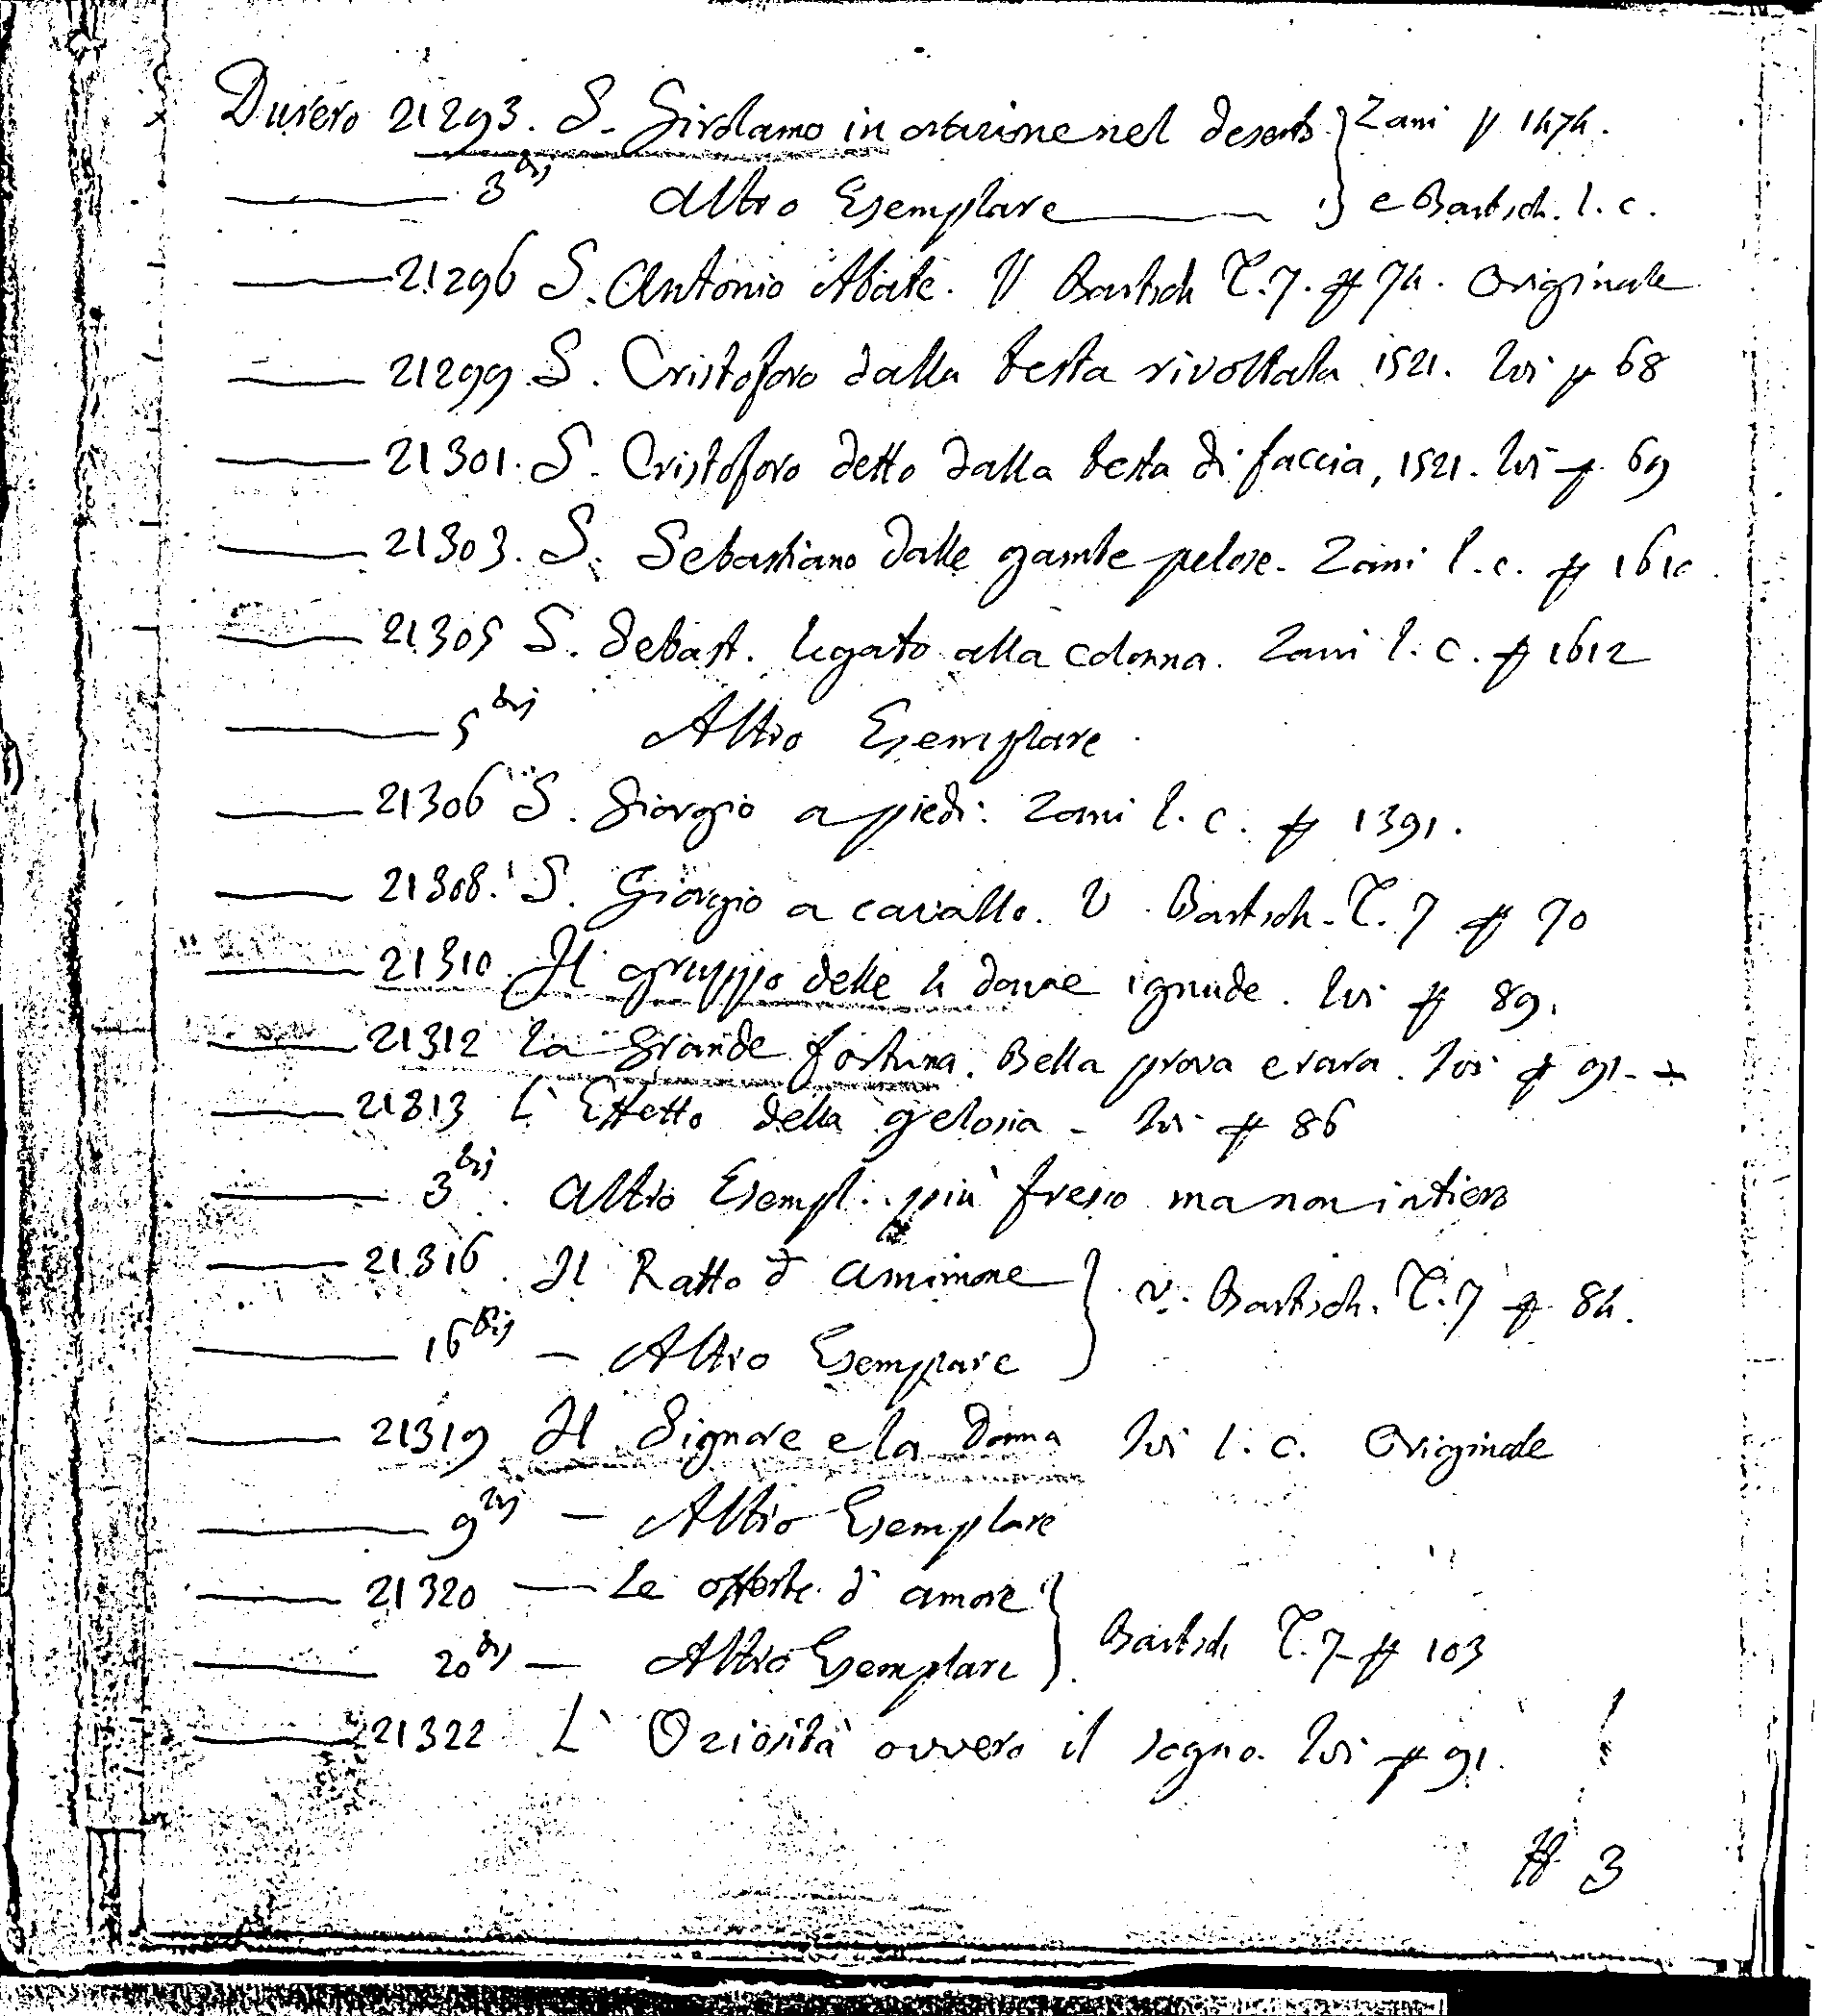 Durero 21293. S. Girolamo in orazione nel deserto } Zani # 1474.
——— 3 bis Altro Esemplare ——— } e Bartsch. l. c.
——— 21296 S. Antonio Abate. V Bartsch T. 7. # 74. Originale
——— 21299 S. Cristoforo dalla testa rivoltata 1521. Ivi # 68
——— 21301. S. Cristoforo detto dalla testa di faccia, 1521. Ivi # 69
——— 21303. S. Sebastiano dalle gambe pelose. Zani l. c. # 1610.
——— 21305 S. Sebast. legato alla colonna. Zani l. c. # 1612
——— 5 bis Altro Esemplare.
——— 21306 S. Giorgio a piedi. Zani l. c. # 1391.
——— 21308. S. Giorgio a cavallo. V. Bartsch. T. 7 # 70
——— 21310. Il gruppo delle 4 donne ignude. Ivi # 89.
——— 21312 La Grande fortuna. Bella prova e rara. Ivi # 91. +
——— 21313 L'Effetto della gelosia - Ivi # 86
——— 3 bis. Altro Esempl. più fresco ma non intiero
——— 21316. Il Ratto d'Amimone } v. Bartsch. T. 7 # 84.
——— 16 bis — Altro Esemplare }
——— 21319 Il Signore e la Donna Ivi l. c. Originale
——— 9 bis — Altro Esemplare
——— 21320 — Le offerte d'amore } Bartsch T. 7 # 103
——— 20 bis — Altro Esemplare }
——— 21322 L'Oziosità ovvero il sogno. Ivi # 91.
# 3